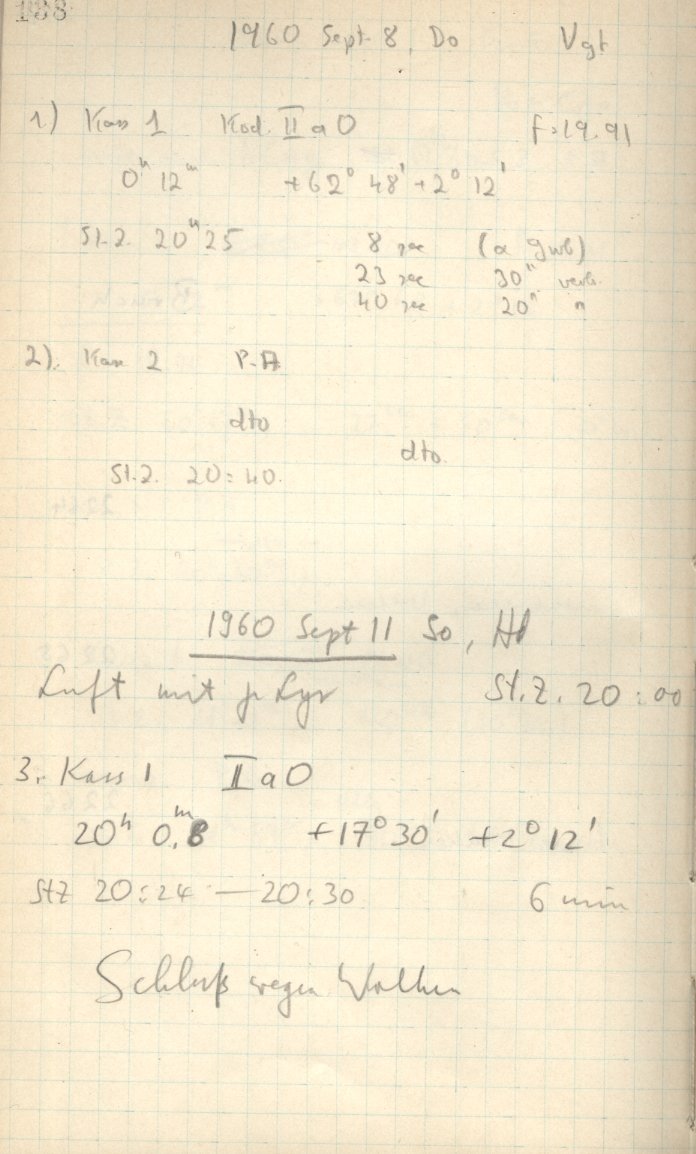 188
1960 Sept. 8, Do Vgt
1.) Kass 1 Kod. II a O f=19.91
0ʰ 12ᵐ +62° 48' +2° 12'
St.Z. 20ʰ25 8 sec
23 sec 30" verb.
40 sec 20" "
2). Kass 2 P-A
dto
dto.
St.Z. 20:40.
1960 Sept 11 So,
Luft mit Lyr St.Z. 20:00
3. Kass 1 II a O
20ʰ 0.ᵐ8 +17° 30' +2° 12'
StZ 20:24 — 20:30 6 min
Schluß wegen Wolken